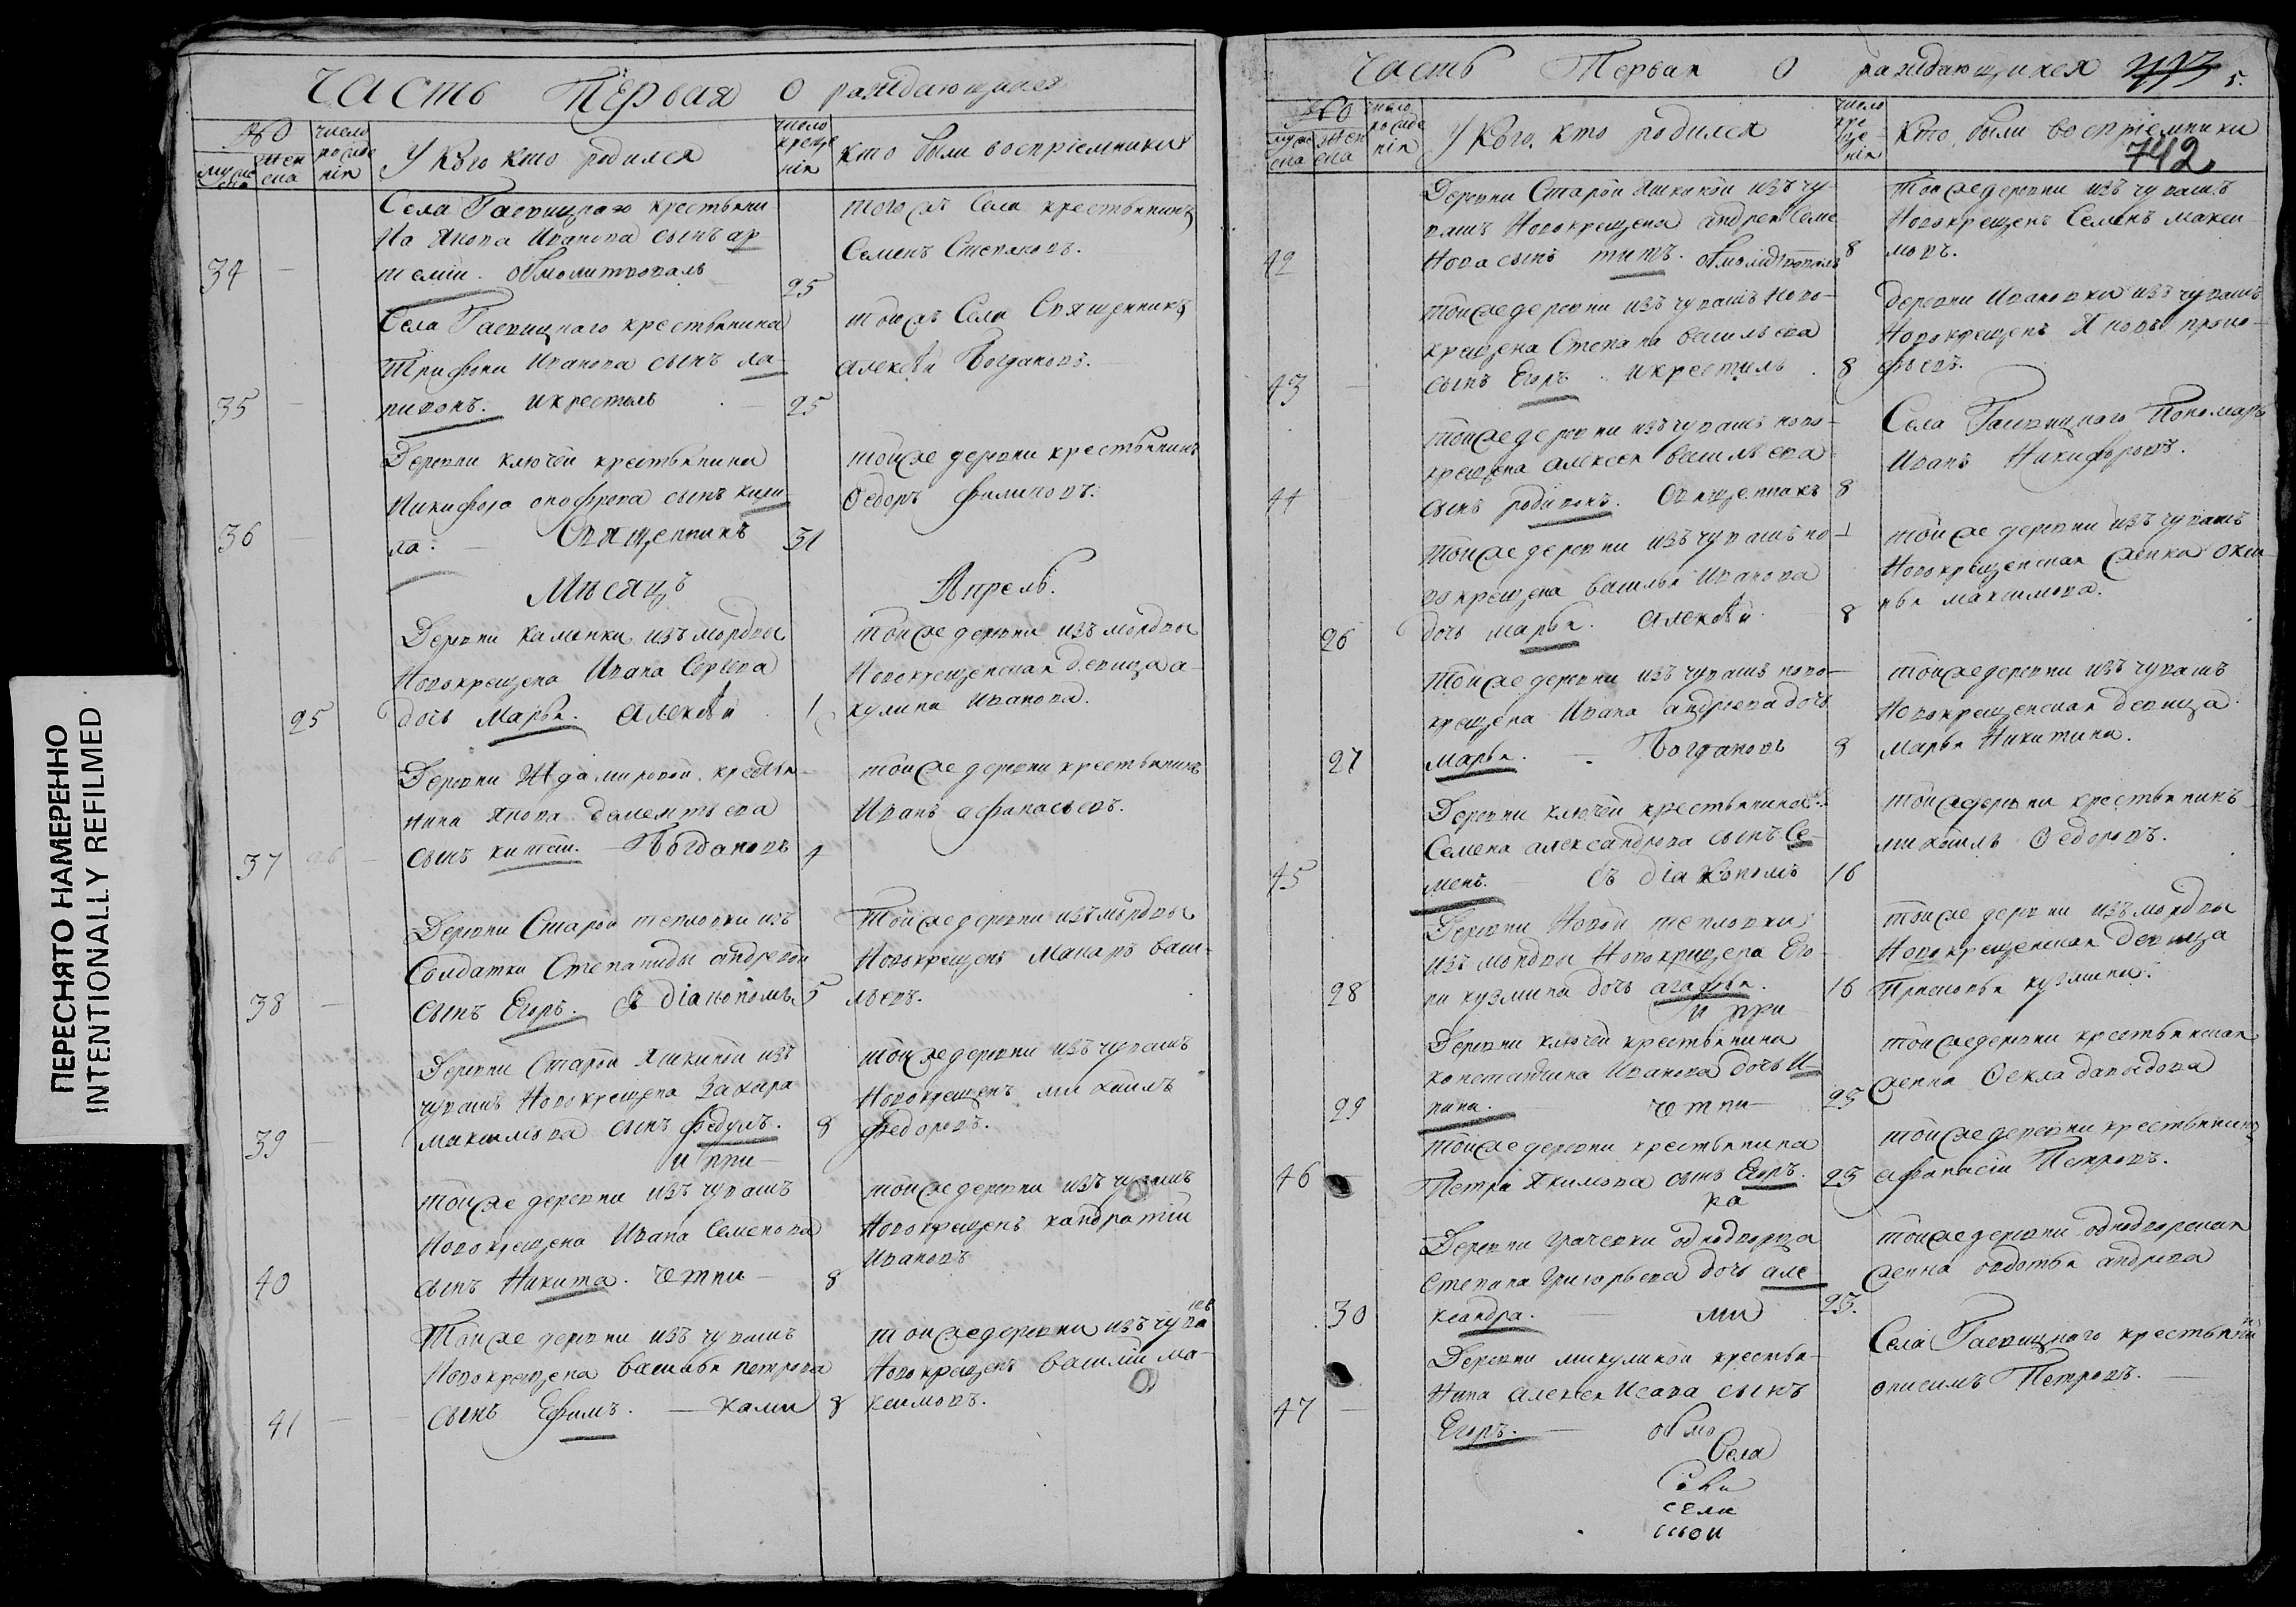 ПЕРЕСНЯТО НАМЕРЕННО
INTENTIONALLY REFILMED
Часть Первая О раждающихся
№
муже ска
жен ска
число рожде нія
У Кого кто родился
число креще нія
кто были воспріемники
Села Гаевицкаго крестьяни
на Якова Иванова сынъ ар
34 — темій. обмолитвовалъ 25
того жъ Села крестьянинъ
Семенъ Степановъ.
Села Гаевицкаго крестьянина
Трифона Иванова сынъ ла
35 — ривонъ. икрестилъ — 25
тойжъ Села Священникъ
алексѣй Богдановъ.
Деревни ключей крестьянина
Никифора онофрева сынъ кири
36 ла. — Священникъ 31
тойже деревни крестьянинъ
Ѳедоръ филиповъ.
Мѣсяцъ Апрель.
Деревни каменки изъ мордвы
Новокрещена Ивана Сергева
25 дочь Марья. алексѣй 1
тойже деревни изъ мордвы
Новокрещенская девица а-
кулина Иванова.
Деревни Ждамировой крестья-
нина Якова дементьева
37 — сынъ китай. — Богдановъ 4
тойже деревни крестьянинъ
Иванъ афанасьевъ.
Деревни Старой тепловки изъ
Солдатки Степаниды андревой
38 — сынъ Егоръ. съ діакономъ 5
Тойже деревни изъ мордвы
Новокрещенъ Макаръ васи-
льевъ.
Деревни Старой Яшкиной изъ
чувашъ Новокрещена Захара
39 — максимова сынъ федулъ. 8
и при-
тойже деревни изъ чувашъ
Новокрещенъ михаилъ
федоровъ.
тойже деревни изъ чувашъ
Новокрещена Ивана Семенова
40 сынъ Никита. четни — 8
тойже деревни изъ чувашъ
Новокрещенъ кандратій
Ивановъ
Тойже деревни изъ чувашъ
Новокрещена василья петрова
41 — сынъ Ефимъ. — ками 8
тойже деревни изъ чува шъ
Новокрещенъ василій ма-
ксимовъ.
Часть Первая О раждающихся 5.
742
№
муже ска
жен ска
число рожде нія
У Кого, кто родился
число кре ще нія
Кто, были воспріемники
Деревни Старой Яшкиной изъ чу-
вашъ Новокрещена андрея Семе
42 нова сынъ титъ. обмолитвовалъ 8
Тойжедеревни изъ чувашъ
Новокрещенъ Семенъ макси
мовъ.
тойжедеревни изъ чувашъ ново-
крещена Степана васильева
43 — сынъ Егоръ. икрестилъ 8
деревни Ивановки изъ чувашъ
Новокрещенъ Яковъ проко-
фьевъ.
тойжедеревни изъ чувашъ ново-
крещена алексея васильева
44 сынъ родивонъ. Священникъ 8
Села Гаевицкаго Пономарь
Иванъ Никифоровъ.
Тойже деревни изъ чувашъ но-
вокрещена василья Иванова
26 дочь марья. алексѣй 8
тойже деревни изъ чувашъ
Новокрещенская женка окси
нья максимова.
Тойже деревни изъ чувашъ ново-
крещена Ивана андреева дочь
27 марья. — Богдановъ 8
тойжедеревни изъ чувашъ
Новокрещенская девица
марья Никитина.
Деревни ключей крестьянина
Семена александрова сынъ Се-
45 менъ. съ діакономъ 16
тойжедеревни крестьянинъ
михаилъ Ѳедоровъ.
Деревни Новой тепловки
изъ мордвы Новокрещена Его-
28 ра кузмина дочь агафья. 16
и при-
тойже деревни изъ мордвы
Новокрещенская девица
Прасковья кузмина.
Деревни ключей крестьянина
константина Иванова дочь И-
29 рина. — четни — 25
тойжедеревни крестьянская
женка Ѳекла давыдова
тойжедеревни крестьянина
46 — Петра Якимова сынъ Егоръ. 25
ка
тойжедеревни крестьянинъ
афанасій Петровъ.
Деревни грачевки однодворца
степана григорьева дочь але
30 ксандра. — ми 25.
тойжедеревни однодворская
женка авдотья андрева
Деревни микулиной крестья-
нина алексея Исаева сынъ
47 — Егоръ. — обмо
Села Гаевицкаго крестьянинъ
онисимъ Петровъ. —
Села
сели